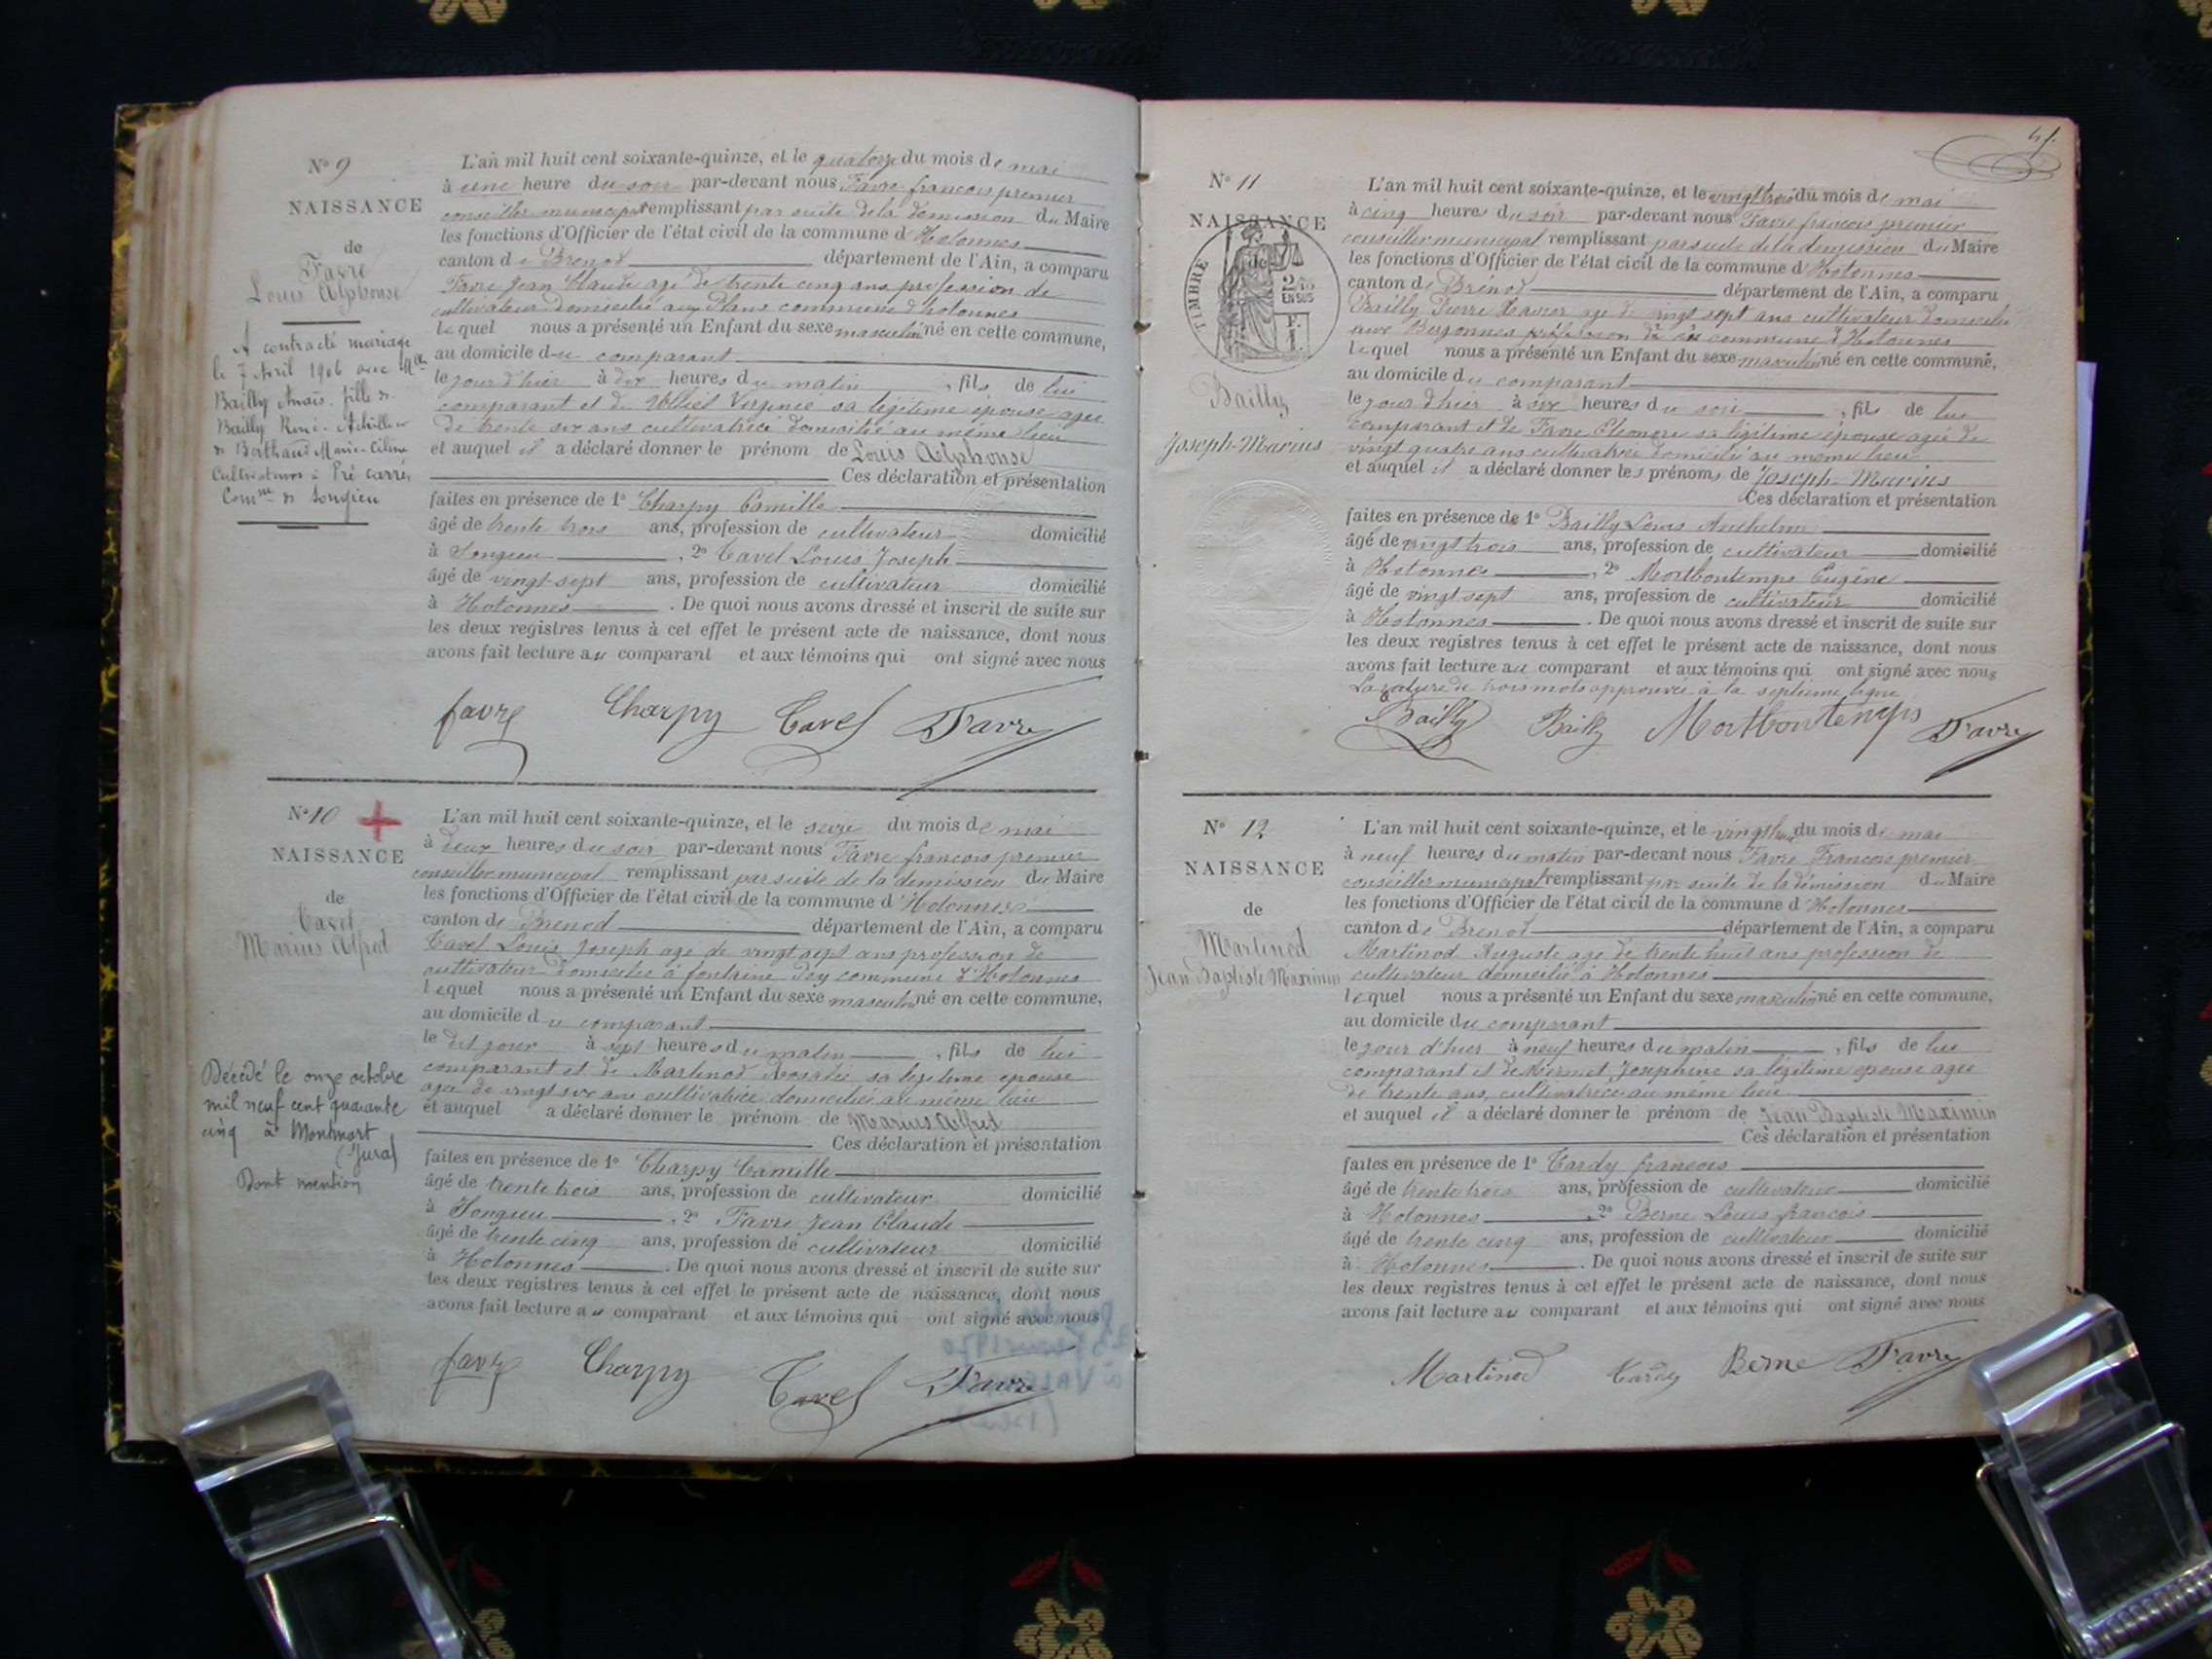 N° 9
NAISSANCE
de
Favre
Louis Alphonse
A contracté mariage
le 7 Avril 1906 avec Mlle
Bailly Anaïs, fille de
Bailly René-Achille et
de Berthaud Marie-Céline
Cultivateurs à Pré Carré,
Comne de Songieu
L'an mil huit cent soixante-quinze, et le quatorze du mois de mai
à une heure du soir par-devant nous Favre françois premier
conseiller municipal remplissant par suite de la démission du Maire
les fonctions d'Officier de l'état civil de la commune d'Hotonnes
canton de Brenod département de l'Ain, a comparu
Favre Jean Claude agé de trente cinq ans profession de
cultivateur domicilié aux Plans commune d'hotonnes
lequel nous a présenté un Enfant du sexe masculin né en cette commune,
au domicile du comparant
le jour d'hier à dix heures du matin, fils de lui
comparant et de Virginie sa légitime épouse agée
de trente six ans cultivatrice domicilié au même lieu
et auquel il a déclaré donner le prénom de Louis Alphonse
Ces déclaration et présentation
faites en présence de 1° Charpy Camille
âgé de trente trois ans, profession de cultivateur domicilié
à Songieu, 2° Cavel Louis Joseph
âgé de vingt-sept ans, profession de cultivateur domicilié
à Hotonnes. De quoi nous avons dressé et inscrit de suite sur
les deux registres tenus à cet effet le présent acte de naissance, dont nous
avons fait lecture au comparant et aux témoins qui ont signé avec nous
favre Charpy Cavel Favre
N° 10
NAISSANCE
de
Cavel
Marius Alfred
Décédé le onze octobre
mil neuf cent quarante
cinq à Monmort
(Jura)
Dont mention
L'an mil huit cent soixante-quinze, et le seize du mois de mai
à deux heures du soir par-devant nous Favre françois premier
conseiller municipal remplissant par suite de la démission du Maire
les fonctions d'Officier de l'état civil de la commune d'Hotonnes
canton de Brenod département de l'Ain, a comparu
Cavel Louis Joseph agé de vingt sept ans profession de
cultivateur domicilié à fontaine commune d'Hotonnes
lequel nous a présenté un Enfant du sexe masculin né en cette commune,
au domicile du comparant
le dit jour à sept heures du matin, fils de lui
comparant et de Martinod Rosalie sa légitime épouse
agée de vingt six ans cultivatrice domiciliée au même lieu
et auquel a déclaré donner le prénom de Marius Alfred
Ces déclaration et présentation
faites en présence de 1° Charpy Camille
âgé de trente trois ans, profession de cultivateur domicilié
à Songieu, 2° Favre Jean Claude
âgé de trente cinq ans, profession de cultivateur domicilié
à Hotonnes. De quoi nous avons dressé et inscrit de suite sur
les deux registres tenus à cet effet le présent acte de naissance, dont nous
avons fait lecture au comparant et aux témoins qui ont signé avec nous
favre Charpy Cavel Favre
N° 11
NAISSANCE
TIMBRE
2/10
EN SUS
Bailly
Joseph-Marius
L'an mil huit cent soixante-quinze, et le vingt trois du mois de mai
à cinq heures du soir par-devant nous Favre françois premier
conseiller municipal remplissant par suite de la démission du Maire
les fonctions d'Officier de l'état civil de la commune d'Hotonnes
canton de Brénod département de l'Ain, a comparu
Bailly Pierre Xavier agé de vingt sept ans cultivateur domicilié
aux Bergonnes profession de commune d'Hotonnes
lequel nous a présenté un Enfant du sexe masculin né en cette commune,
au domicile du comparant
le jour d'hier à six heures du soir, fils de lui
comparant et de Favre Eleonore sa légitime épouse agée de
vingt quatre ans cultivatrice domicilié au même lieu
et auquel il a déclaré donner les prénoms de Joseph-Marius
Ces déclaration et présentation
faites en présence de 1° Bailly Louis Anthelme
âgé de vingt trois ans, profession de cultivateur domicilié
à Hotonnes, 2° Montbontemps Eugène
âgé de vingt sept ans, profession de cultivateur domicilié
à Hotonnes. De quoi nous avons dressé et inscrit de suite sur
les deux registres tenus à cet effet le présent acte de naissance, dont nous
avons fait lecture au comparant et aux témoins qui ont signé avec nous
La rature de trois mots approuvée à la septième ligne
Bailly Bailly Montbontemps Favre
N° 12
NAISSANCE
de
Martinod
Jean Baptiste Maximin
L'an mil huit cent soixante-quinze, et le du mois de mai
à neuf heures du matin par-devant nous Favre François premier
conseiller municipal remplissant par suite de la démission du Maire
les fonctions d'Officier de l'état civil de la commune d'Hotonnes
canton de Brenod département de l'Ain, a comparu
Martinod Auguste agé de trente huit ans profession de
cultivateur domicilié à Hotonnes
lequel nous a présenté un Enfant du sexe masculin né en cette commune,
au domicile du comparant
le jour d'hier à neuf heures du matin, fils de lui
comparant et de Mermet Joséphine sa légitime épouse agée
de trente ans, cultivatrice au même lieu
et auquel il a déclaré donner le prénom de Jean Baptiste Maximin
Ces déclaration et présentation
faites en présence de 1° Tardy françois
âgé de trente trois ans, profession de cultivateur domicilié
à Hotonnes, 2° Berne Louis françois
âgé de trente cinq ans, profession de cultivateur domicilié
à Hotonnes. De quoi nous avons dressé et inscrit de suite sur
les deux registres tenus à cet effet le présent acte de naissance, dont nous
avons fait lecture au comparant et aux témoins qui ont signé avec nous
Martinod Tardy Berne Favre